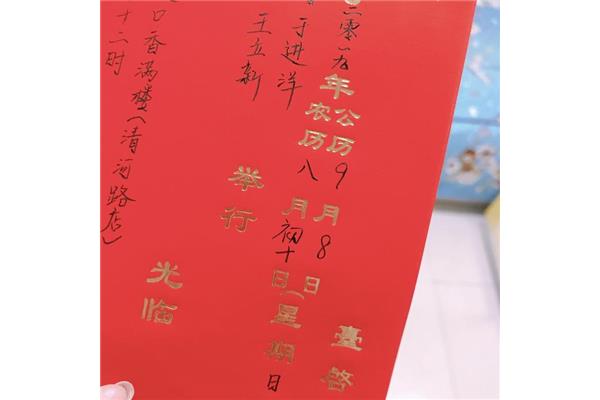 臺啓
二零一九年
公历9月8日
农历八月初十日
(星期日
于进洋
王立新
举行
光临
口香满楼(清河路店)
十二时